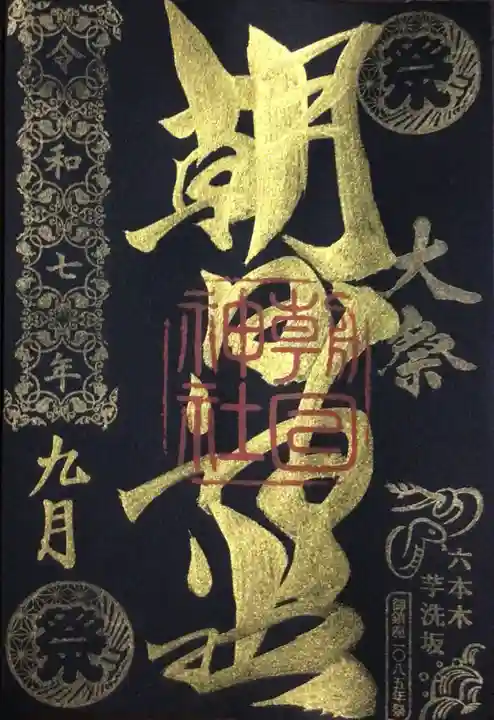 祭
大祭
六本木
芋洗坂
御鎮座一〇八五年祭
朝日神社
朝日
神社
令和七年
九月
祭